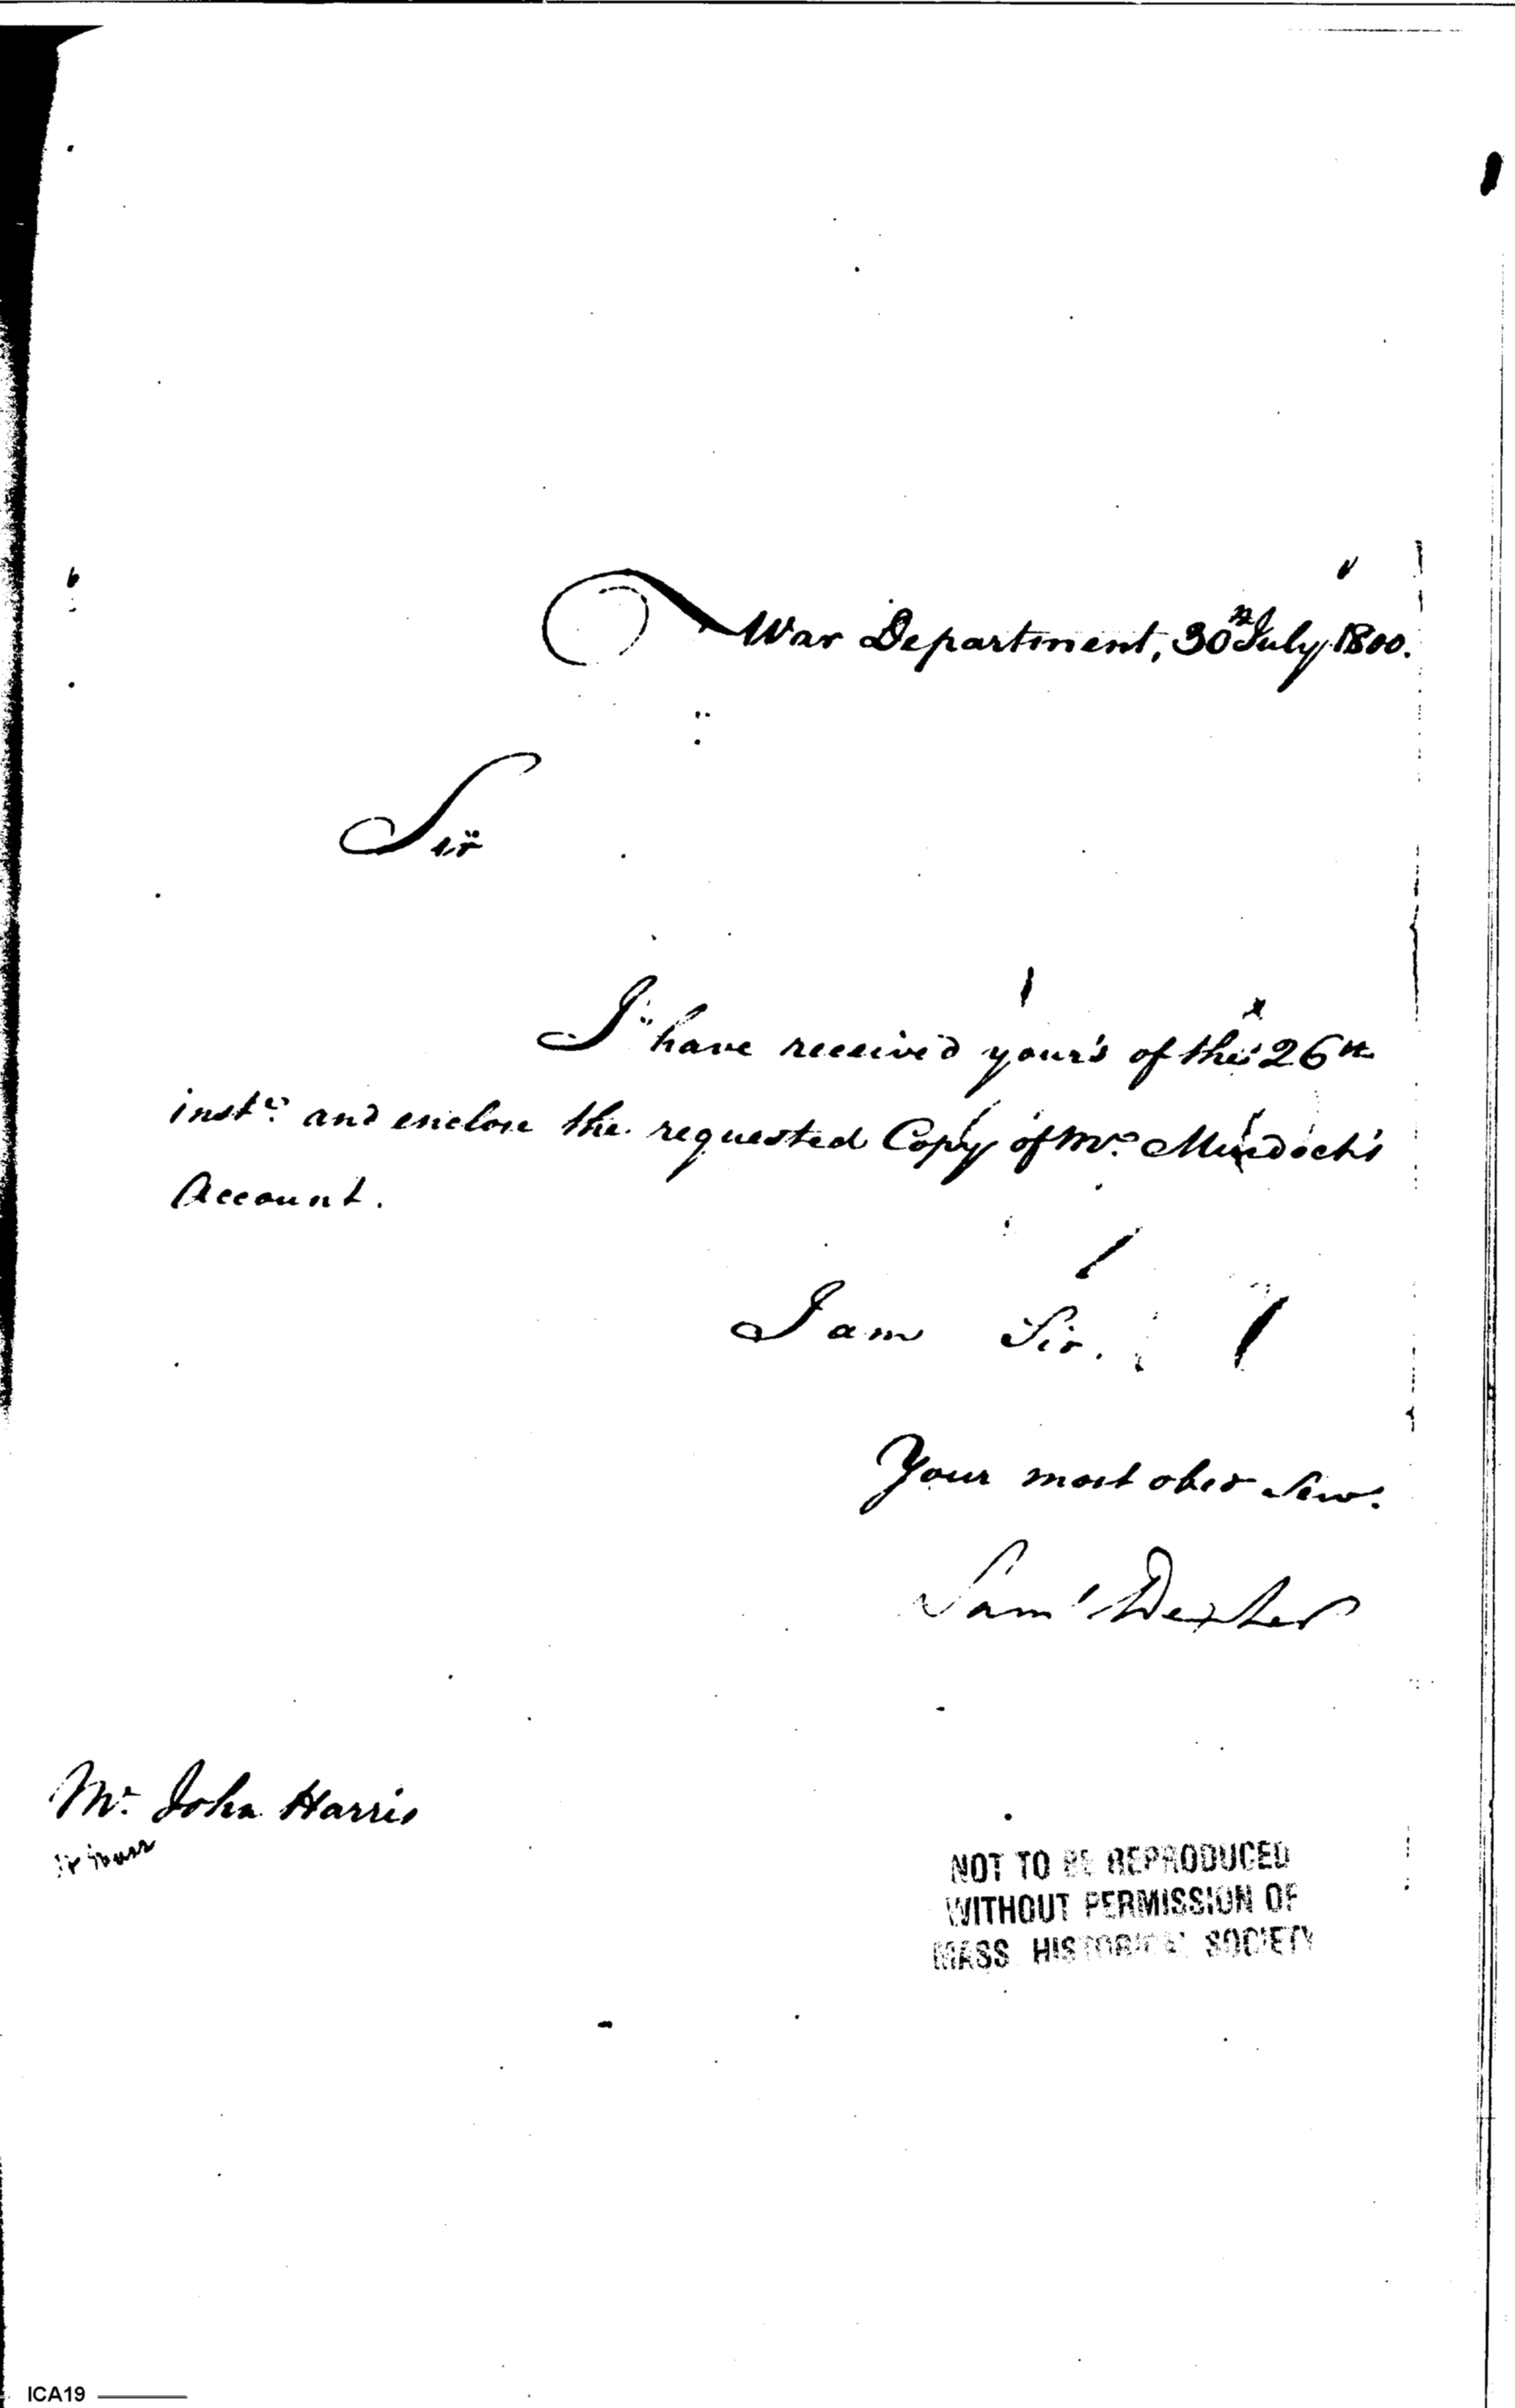 War Department, 30th July 1800.
Sir
I have received your's of the 26th
inst. and enclose the requested Copy of Mr. Murdoch's
Account.
I am Sir.
Your most obed Serv.
Saml Dexter
Mr. John Harris
NOT TO BE REPRODUCED
WITHOUT PERMISSION OF
MASS HISTORICAL SOCIETY
ICA19